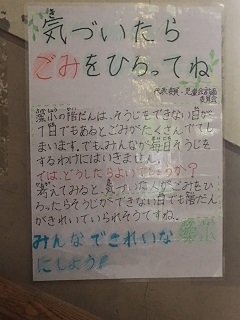 気づいたら
ごみをひろってね
代表委員・児童会計画
委員会
葉ホの階だんは、そうじをできない日が
1日でもあるとごみがたくさんでてし
まいます。でもみんなが毎日そうじを
するわけにはいきません。
では、どうしたらよいでしょうか？
考えてみると、気づいた人がごみをひ
ろったらそうじができない日でも階だん
がきれいでいられそうですね。
みんなできれいな 葉ホ
にしよう！